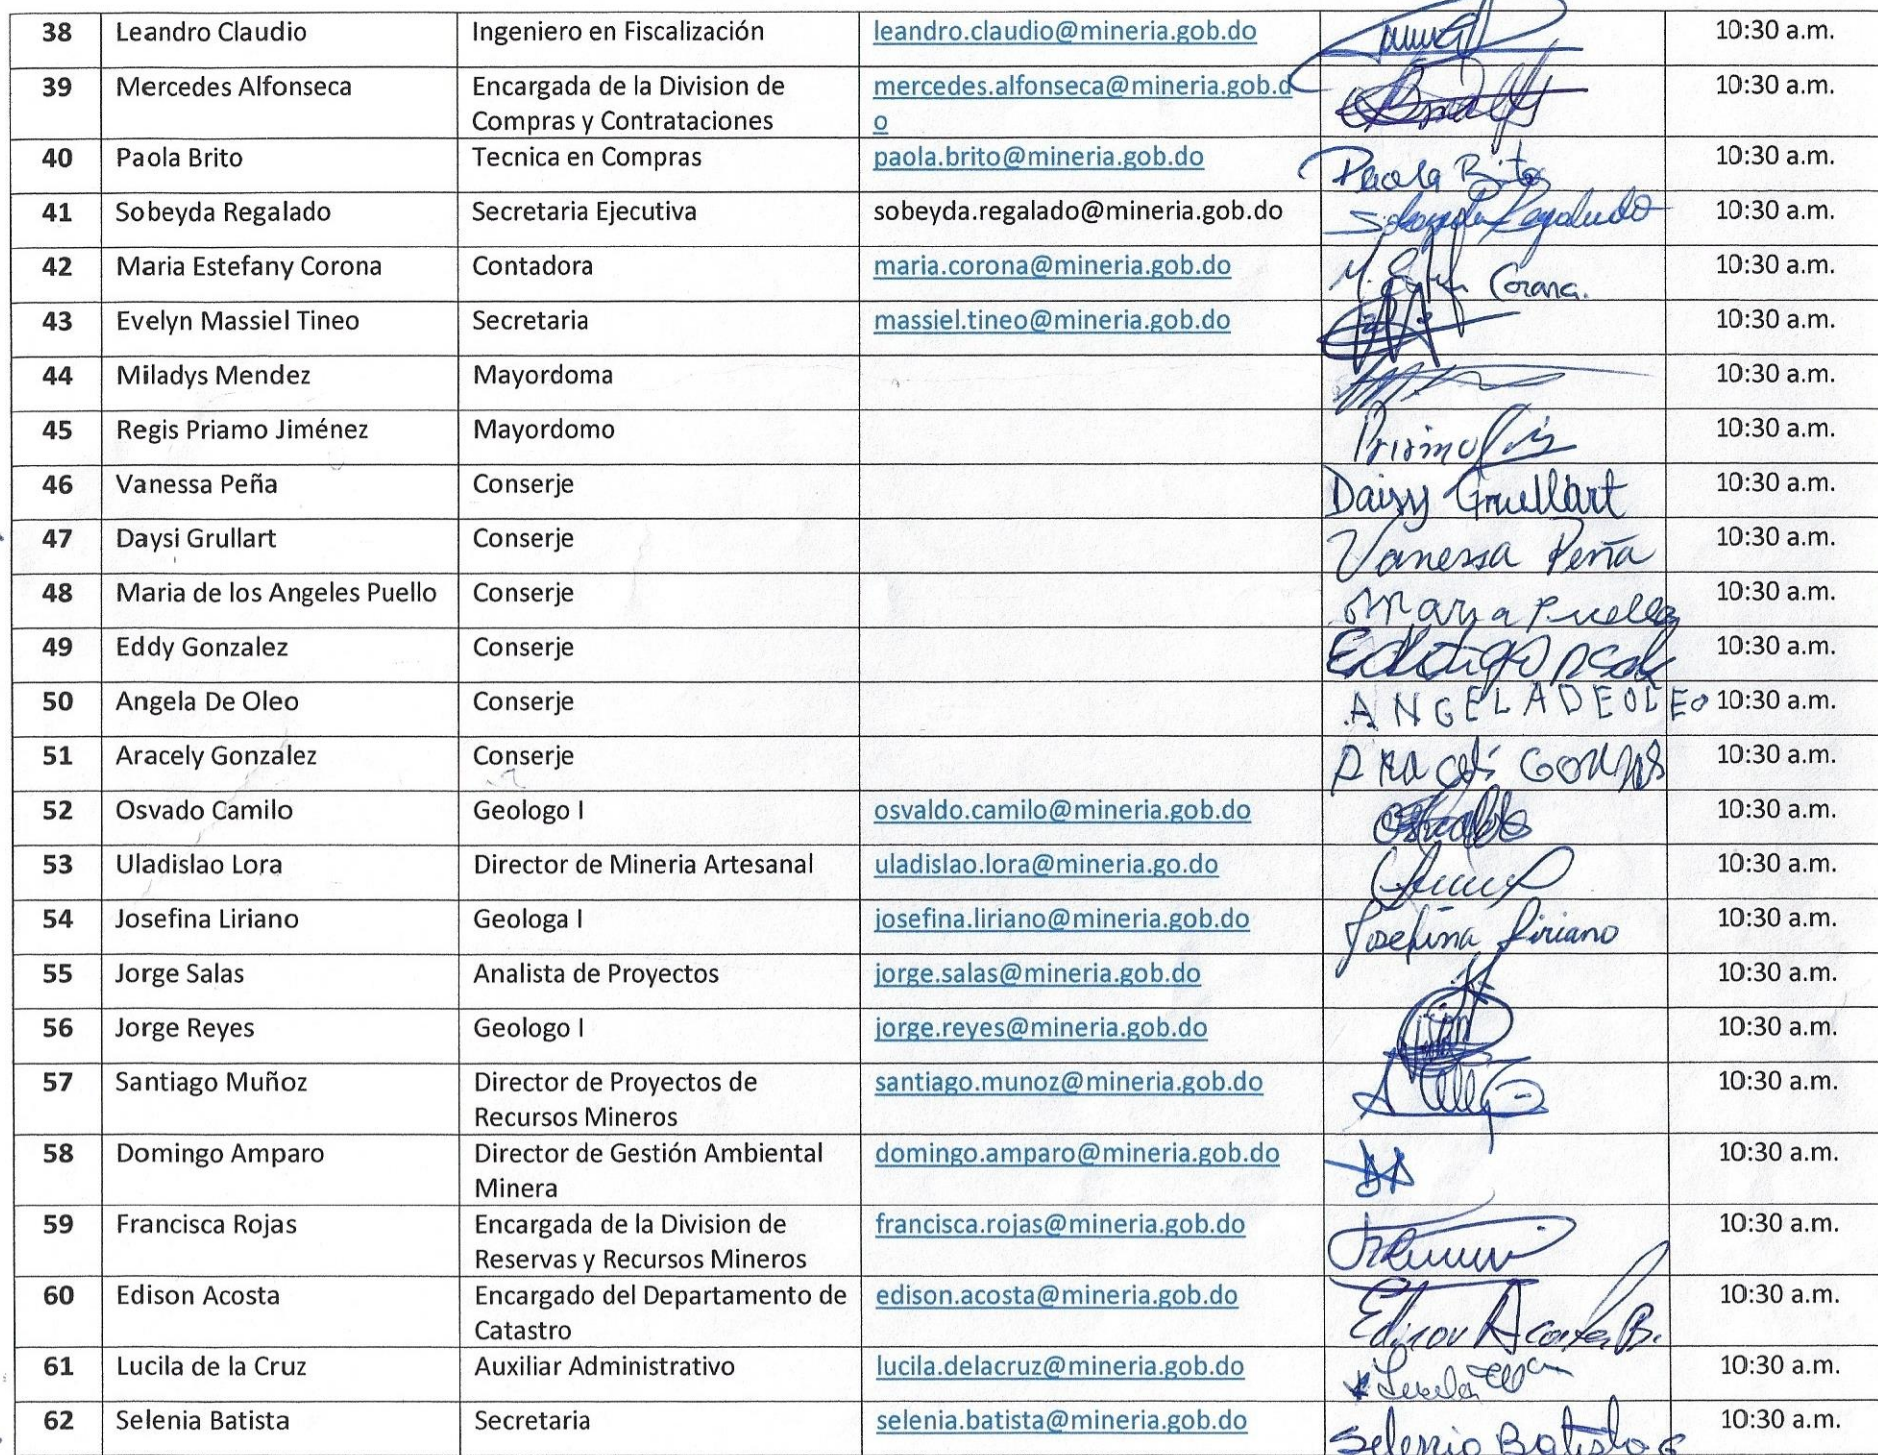 38 Leandro Claudio Ingeniero en Fiscalización leandro.claudio@mineria.gob.do 10:30 a.m.
39 Mercedes Alfonseca Encargada de la Division de mercedes.alfonseca@mineria.gob.d 10:30 a.m.
Compras y Contrataciones o
40 Paola Brito Tecnica en Compras paola.brito@mineria.gob.do Paola Brito 10:30 a.m.
41 Sobeyda Regalado Secretaria Ejecutiva sobeyda.regalado@mineria.gob.do Sobeyda Regalado 10:30 a.m.
42 Maria Estefany Corona Contadora maria.corona@mineria.gob.do M. Corona. 10:30 a.m.
43 Evelyn Massiel Tineo Secretaria massiel.tineo@mineria.gob.do 10:30 a.m.
44 Miladys Mendez Mayordoma 10:30 a.m.
45 Regis Priamo Jiménez Mayordomo 10:30 a.m.
46 Vanessa Peña Conserje Daisy Gruellart 10:30 a.m.
47 Daysi Grullart Conserje Vanessa Peña 10:30 a.m.
48 Maria de los Angeles Puello Conserje Maria Puello 10:30 a.m.
49 Eddy Gonzalez Conserje 10:30 a.m.
50 Angela De Oleo Conserje ANGELADEOLEO 10:30 a.m.
51 Aracely Gonzalez Conserje 10:30 a.m.
52 Osvado Camilo Geologo I osvaldo.camilo@mineria.gob.do 10:30 a.m.
53 Uladislao Lora Director de Mineria Artesanal uladislao.lora@mineria.go.do 10:30 a.m.
54 Josefina Liriano Geologa I josefina.liriano@mineria.gob.do Josefina Liriano 10:30 a.m.
55 Jorge Salas Analista de Proyectos jorge.salas@mineria.gob.do 10:30 a.m.
56 Jorge Reyes Geologo I jorge.reyes@mineria.gob.do 10:30 a.m.
57 Santiago Muñoz Director de Proyectos de santiago.munoz@mineria.gob.do 10:30 a.m.
Recursos Mineros
58 Domingo Amparo Director de Gestión Ambiental domingo.amparo@mineria.gob.do 10:30 a.m.
Minera
59 Francisca Rojas Encargada de la Division de francisca.rojas@mineria.gob.do 10:30 a.m.
Reservas y Recursos Mineros
60 Edison Acosta Encargado del Departamento de edison.acosta@mineria.gob.do Edison Acosta B. 10:30 a.m.
Catastro
61 Lucila de la Cruz Auxiliar Administrativo lucila.delacruz@mineria.gob.do 10:30 a.m.
62 Selenia Batista Secretaria selenia.batista@mineria.gob.do Selenia Batista 10:30 a.m.